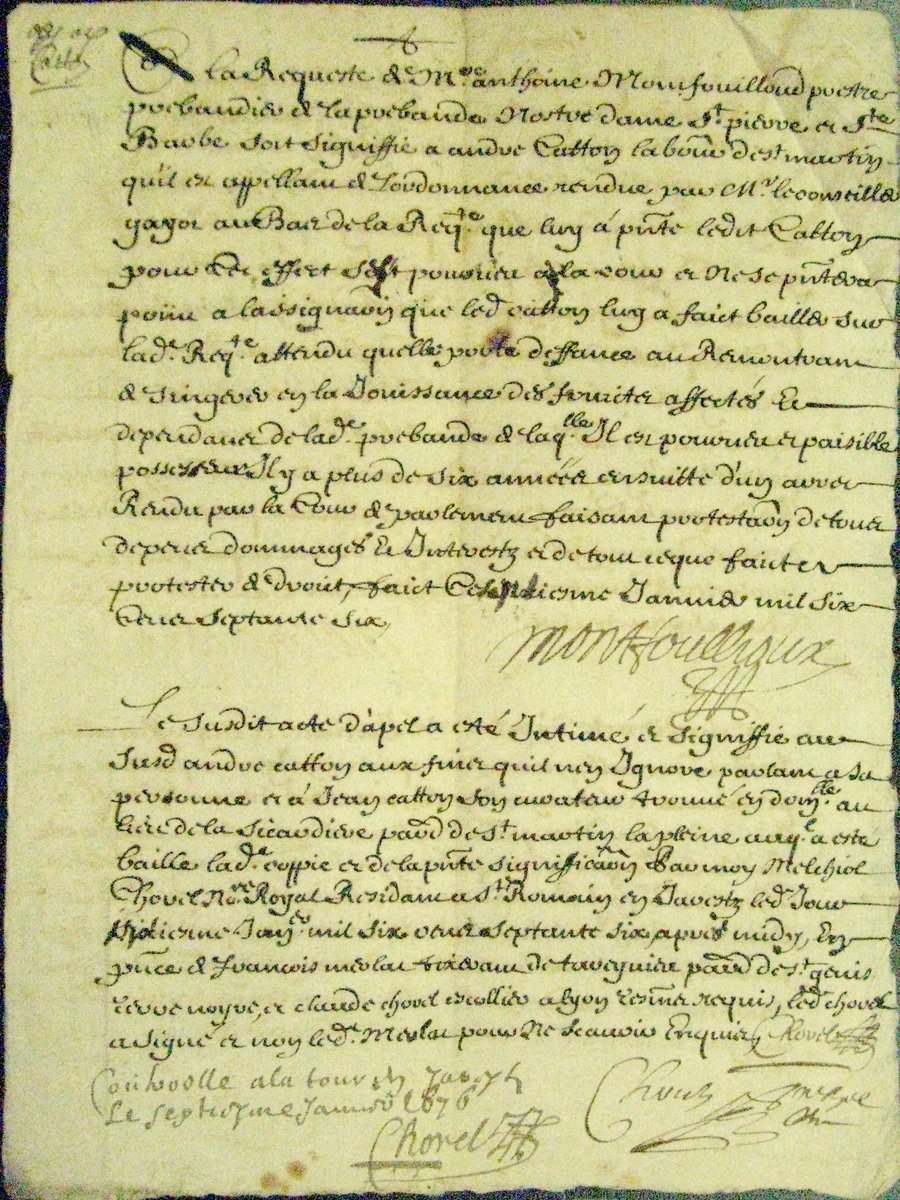 A la Requeste de Mre anthoine Montfouilloud prestre
prebandier de la prebande Nostre dame St pierre et Ste
Barbe soit signiffié a andre Catton labour de st martin
quil est appellant de Lordonnance rendue par Mr le conseiller
gayot au Bas de la Reqte que luy á pnte ledit Catton
pour Cet effect sest pourveu a la cour et Ne se pntera
point a lassignaon que led catton luy a faict bailler sur
lade Reqte attendu quelle porte deffance au Remontrant
de singerer en la Jouissance des fruictz affectés Et
dependantz de lade prebande de laqlle Il est pourveu et paisible
possesseur Il y a plus de six années ensuitte d'un arrest
Rendu par la Cour de parlement faisant protestaon de tous
depens dommages Et Interestz et de tout ce que faict et
protester de droict, faict Ce septiesme Janvier mil six
Cens Septante six,
montfoulhoux
Le susdit acte d'apel a esté Intimé et signiffié au
susd andre catton aux fins quil nen Ignore parlant a sa
personne et á Jean catton son curateur trouvé en domlle au
lieu de la sicaudiere parr de st martin la pleine auql a esté
baille lade coppie et de la pnte signifficaon Par moy Melchiol
Chovel Nore Royal Residant a St Romain en Jarestz led Jour
septiesme Janer mil six cens septante six apres midy, En
pnce de francois merlat tixerant de tareynieu parr de st genis
terre noyre, et claude chovel escollier a lyon tesmz requis, led chovel
a signé et non led Merlat pour Ne scavoir Enquis, Chovel
Controolle a la tour en Jarest
Le septiesme Janvier 1676
Chovel